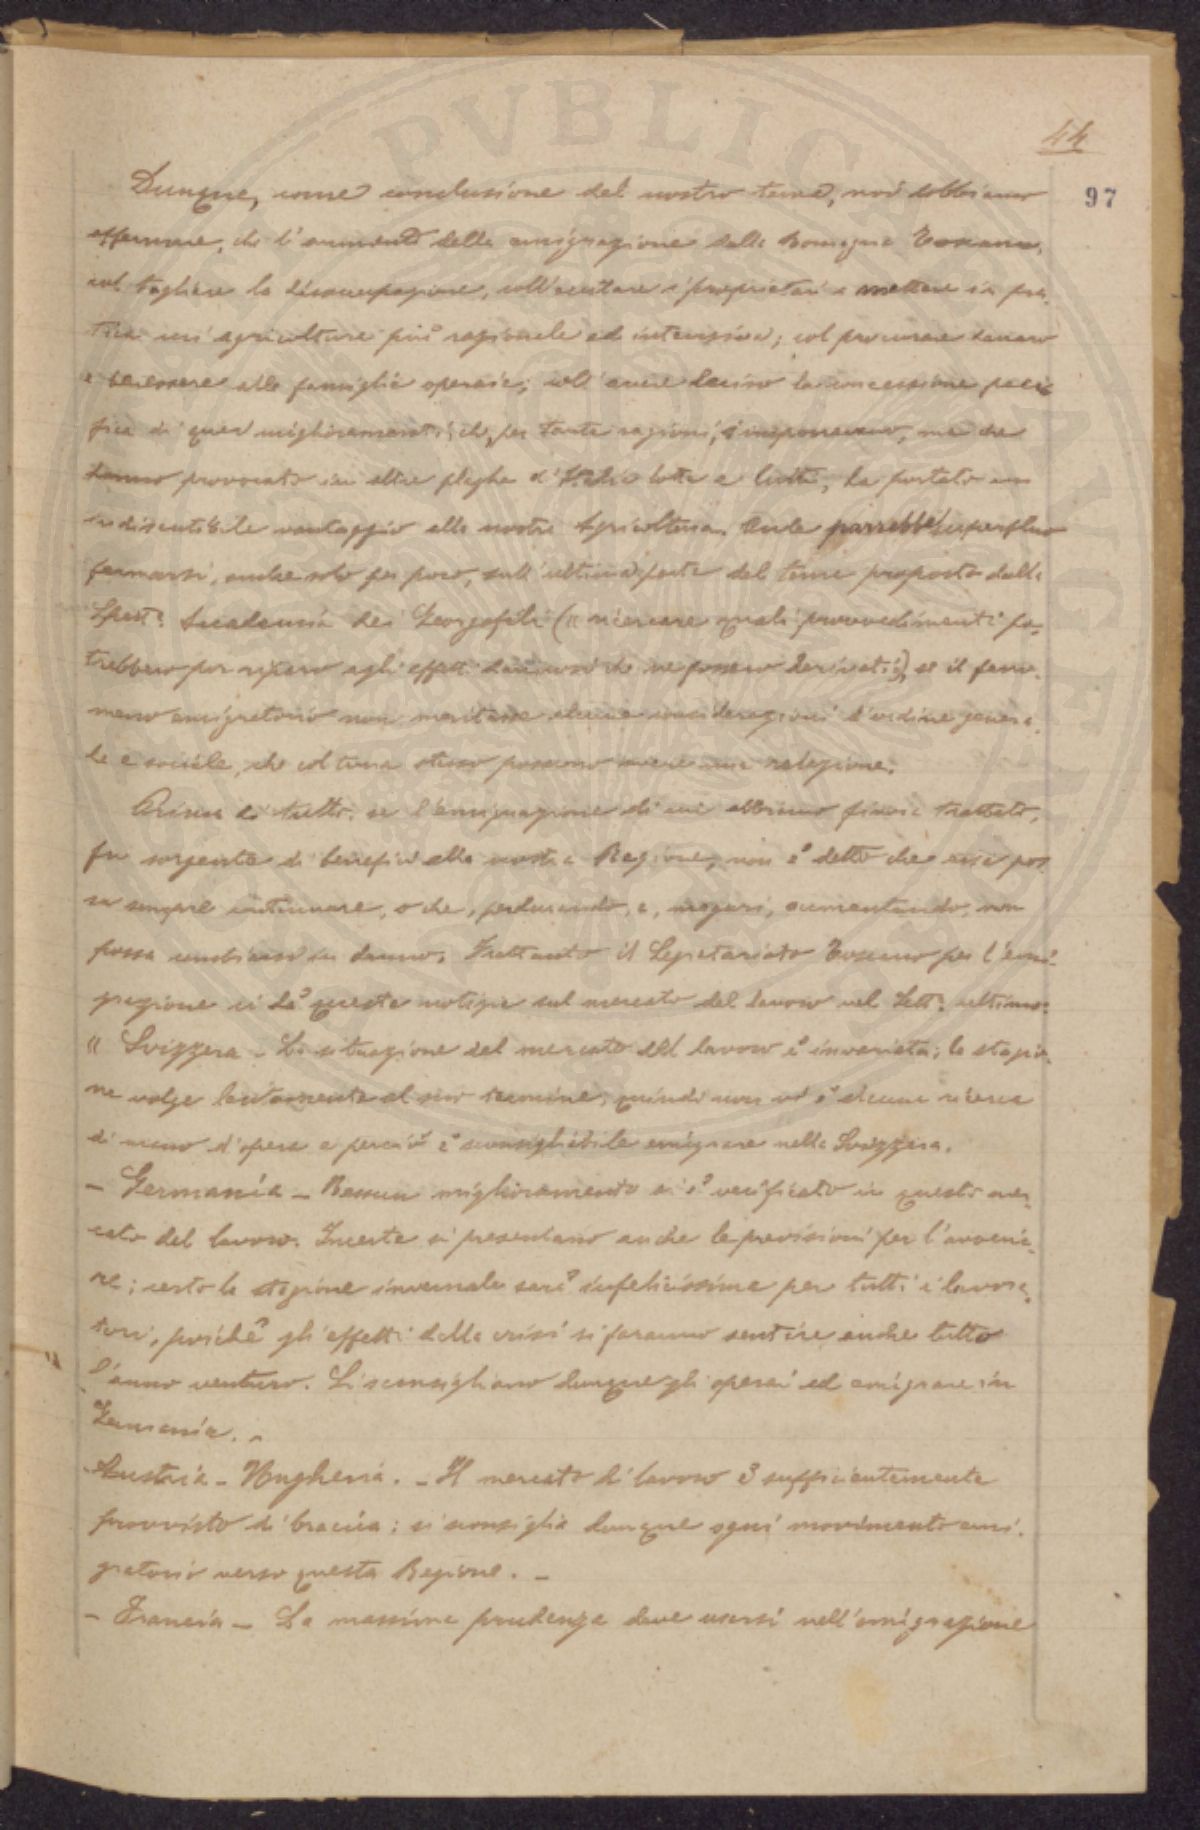 44
97
Dunque, come conclusione del nostro tema, noi dobbiamo
affermare, che l'aumento della emigrazione dalla Romagna Toscana,
col togliere la disoccupazione, coll'eccitare i proprietari a mettere in pra-
tica un'agricoltura più razionale ed intensiva; col procurare danaro
e benessere alle famiglie operaie; coll'avere deciso la concessione paci-
fica di quei miglioramenti, che, per tante ragioni, s'imponevano, ma che
hanno provocato in altre plaghe d'Italia lotte e lutti, ha portato un
indiscutibile vantaggio alla nostra Agricoltura. Onde parrebbe superfluo
fermarsi, anche solo per poco, sull'ultima parte del tema proposto dalla
Spett. Accademia dei Georgofili (" ricercare quali provvedimenti po-
trebbero por riparo agli effetti dannosi che ne fossero derivati"), se il feno-
meno emigratorio non meritasse alcune considerazioni d'ordine genera-
le e sociale, che col tema stesso possono avere una relazione.
Prima di tutto, se l'emigrazione di cui abbiamo finora trattato,
fu sorgente di benefici alla nostra Regione, non è detto che essa pos-
sa sempre continuare, o che, perdurando, e, magari, aumentando, non
possa cambiarsi in danno. Frattanto il Segretariato Toscano per l'emi-
grazione ci dà queste notizie sul mercato del lavoro nel Sett. ultimo:
" Svizzera - La situazione del mercato del lavoro è invariata; la stagio-
ne volge lentamente al suo termine, quindi non vi è alcuna ricerca
di mano d'opera e perciò è sconsigliabile emigrare nella Svizzera.
- Germania - Nessun miglioramento si è verificato in questo mer-
cato del lavoro. Incerte si presentano anche le previsioni per l'avveni-
re; certo la stagione invernale sarà infelicissima per tutti i lavora-
tori, poichè gli effetti della crisi si faranno sentire anche tutto
l'anno venturo. Si sconsigliano dunque gli operai ad emigrare in
Germania. -
Austria - Ungheria. - Il mercato di lavoro è sufficientemente
provvisto di braccia: si sconsiglia dunque ogni movimento emi-
gratorio verso questa Regione. -
- Francia - La massima prudenza deve usarsi nell'emigrazione